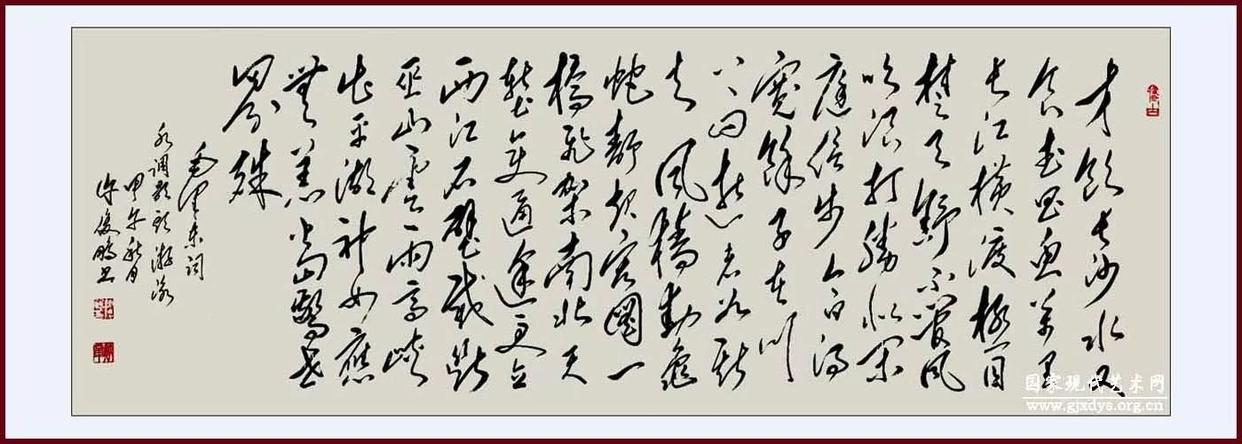 才饮长沙水又
食武昌鱼万里
长江横渡极目
楚天舒不管风
吹浪打胜似闲
庭信步今日得
宽馀子在川
上曰逝者如斯
夫风樯动龟
蛇静起宏图一
桥飞架南北天
堑变通途更立
西江石壁截断
巫山云雨高峡
出平湖神女应
無恙当惊世
界殊
毛泽东词
水调歌头游泳
甲午秋月
许俊鹏书
国家现代艺术网
www.gjxdys.org.cn